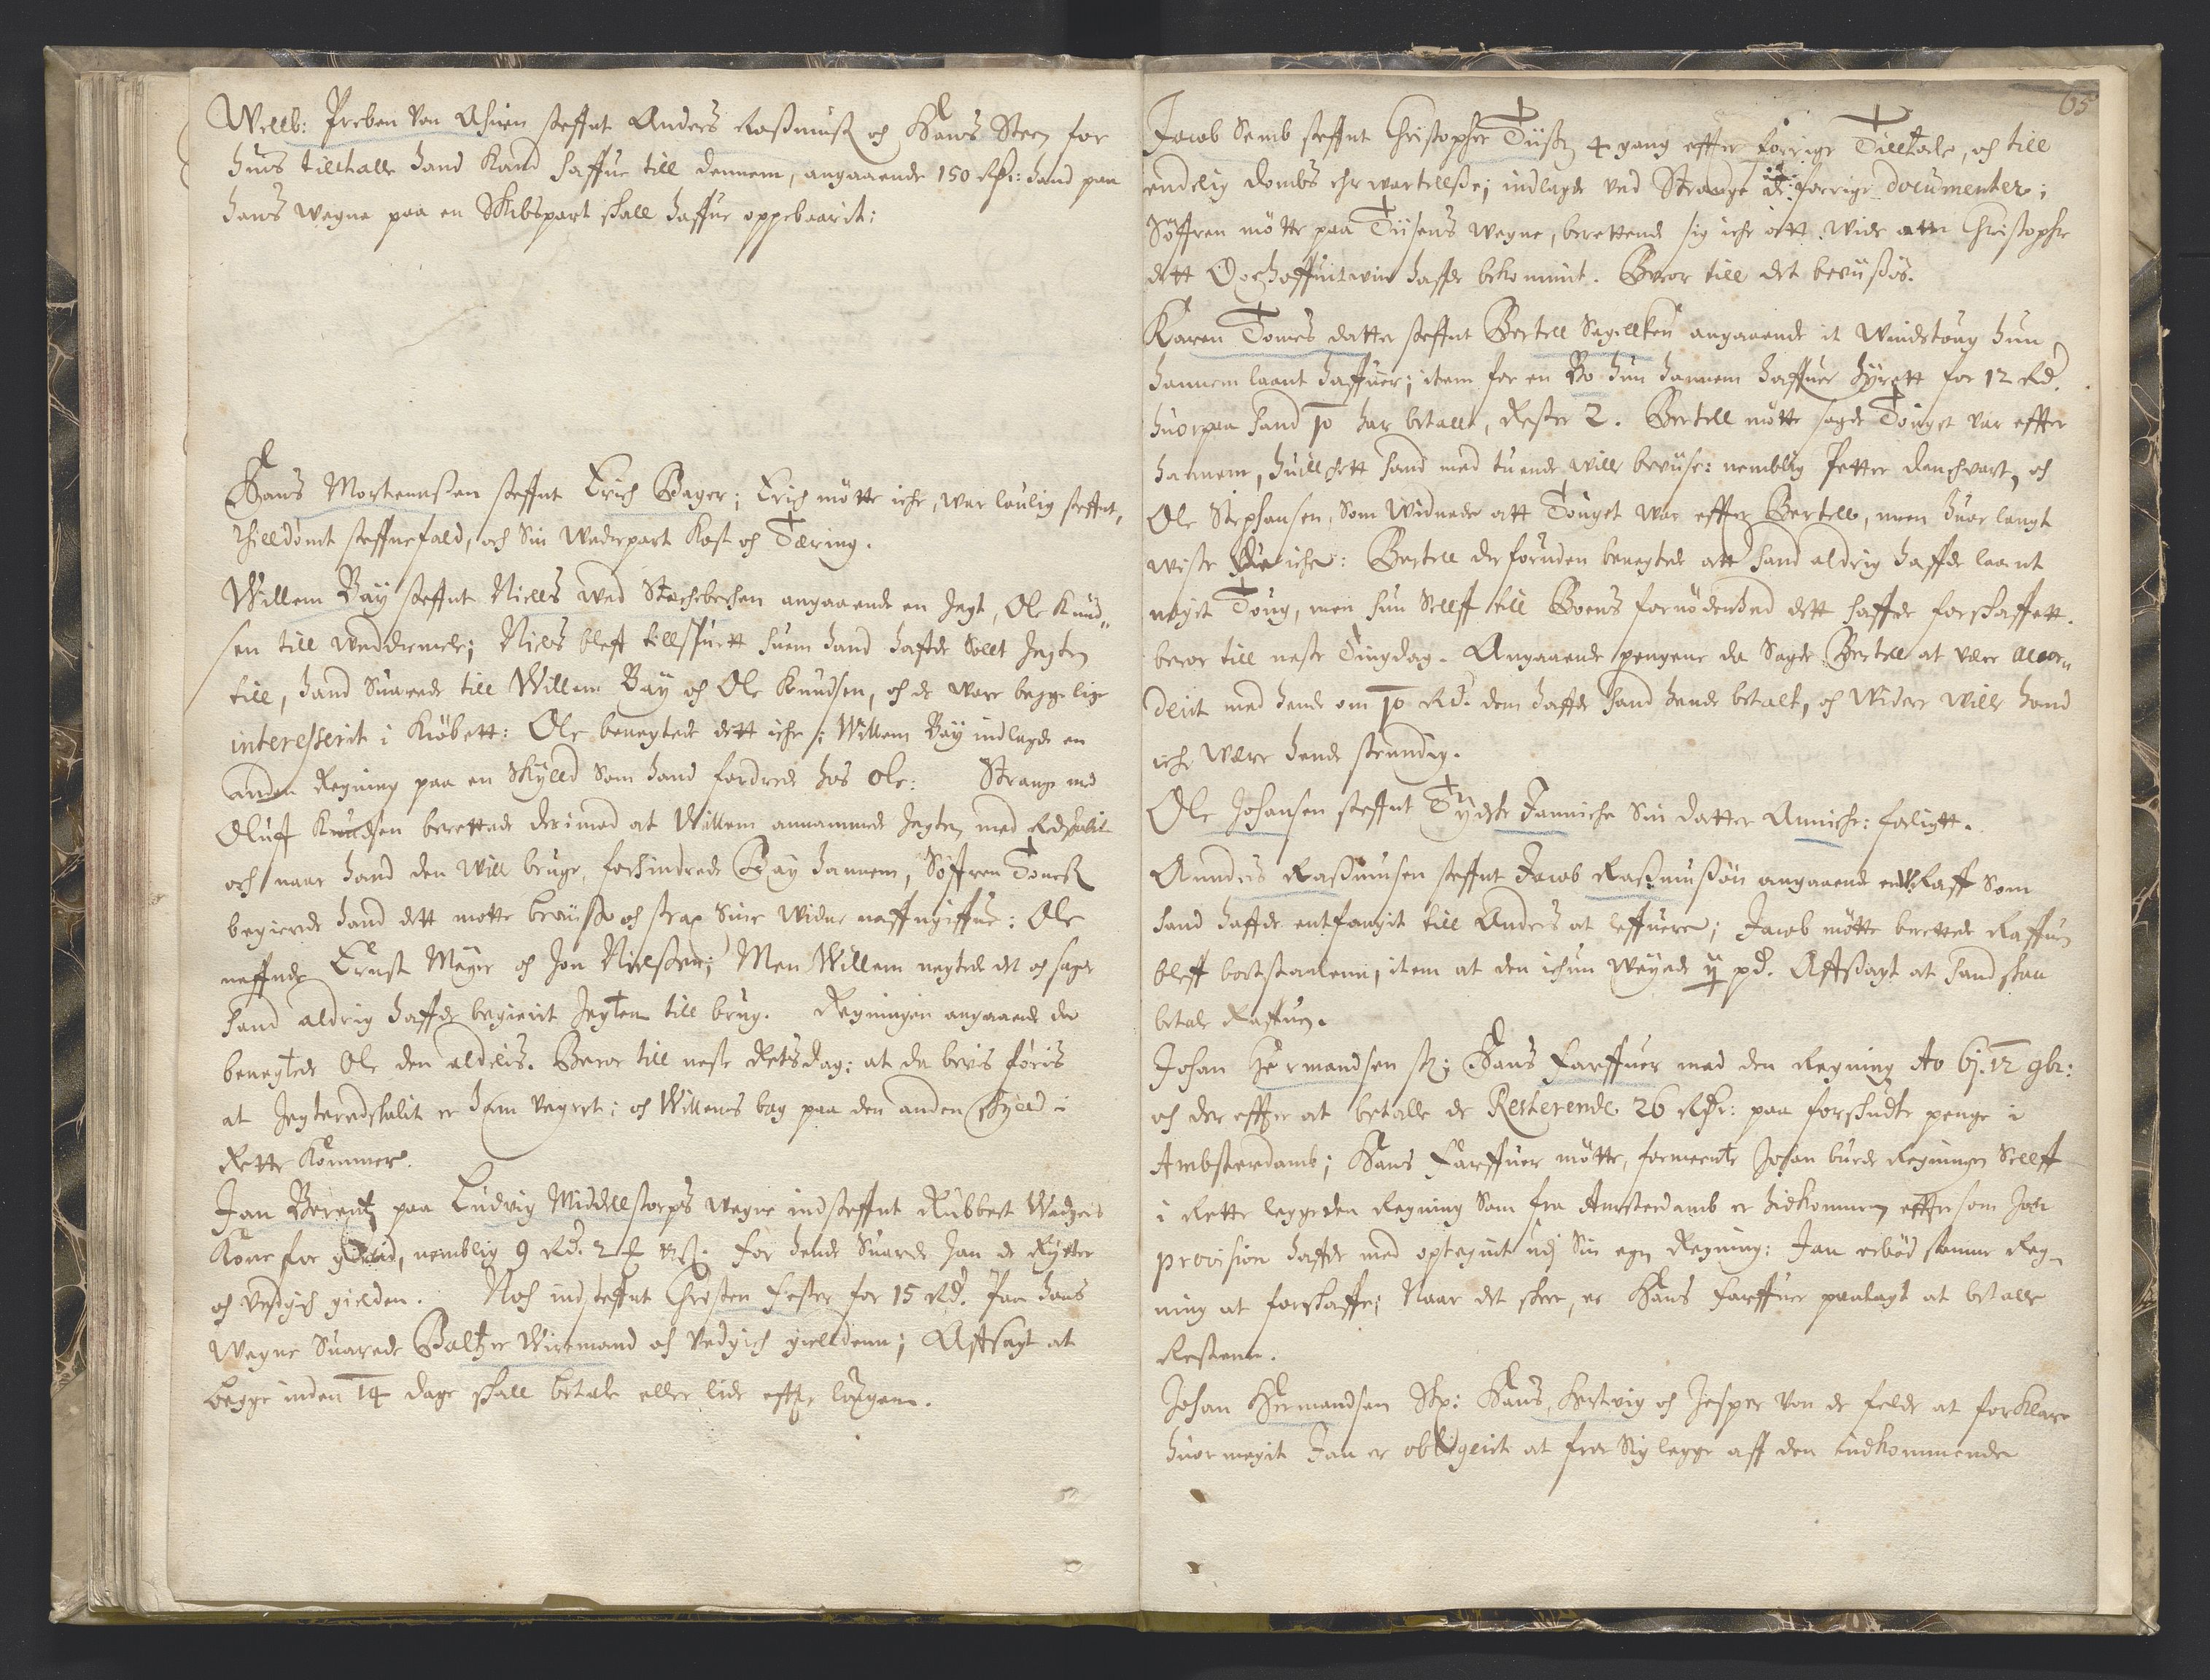 Wellb: Preben Von Ahnen steffnt Anders Rasmuss och Hans Steen for
huis tilthalle hand Kand haffue till dennem, angaaende 150 Rdr: hand paa
hans wegne paa en Skibspart skall haffue oppebaarit:
Hans Mortenssen steffnt Erich Bager; Erich mötte iche, war louglig steffnt,
thilldömt steffnefald, och Sin Wederpart Kost och Tæring.
Willem Bay steffnt Niells wed Stochebechen angaaende en Jegt, Ole Knud-
sen till wedermele; Niels bleff tillspurt huem hand hafde Sollt Jegten
till, hand Suarede till Willem Bay och Ole Knudsen, och de ware begge lige
interesserit i Kiöbett: Ole benegtede dett iche; Willem Bay indlagde en
anden Regning paa en Skyld Som hand fordrede hos Ole: Strange med
Oluff Knudsen berettede derimod at Willem annammede Jegten med Redskab
och naar hand den will bruge, forhindrede Bay hannem, Söffren Toness
begierede hand dett motte beuisse och strax Sine Widne naffngiffue: Ole
neffnde Ernst Meyer och Jon Nielssen; Men Willem negtede det och sagde
hand aldrig haffde begierit Jegten till brug. Regningen angaaende da
benegtede Ole den aldelis. Beror till neste Retsdag: at da bevis föris
at Jegteredskabit er ham negtet; och Willems bog paa den anden Skyld i
Rette Kommer.
Jan Berentz paa Ludvig Middelstorps wegne indsteffnt Rubbert Wedgers
Kone for gield, nemblig 9 Rd. 2 for hende Suarede Jan de Ryter
och vedgich gielden. Noch indsteffnt Christen Fester for 15 Rd. Paa hans
Wegne Suarede Baltzer Wirmand och vedgich gielldenn; Affsagt at
begge inden 14 dage skall betale eller lide effter laagenn.
65
Jacob Semb steffnt Christopher Tiissen 4 gang effter forrige Tilltale, och till
endelig dombs ehrwartellsse; indlagde ved Strange de forrige documenter;
Söffren mötte paa Tiisens wegne, berettende sig iche att wide att Christopher
dett Oxehoffuit win haffde bekommit. Beror till det beuissis.
Karen Tomes datter steffnt Bertell Segillken angaaende it Windetoug hun
hannem laant haffuer; item for en Bo hun hannem haffuer hyrett for 12 Rd.
huorpaa hand 10 har betallt, Rester 2. Bertell mötte sagde Touget var effter
hannem, huilchett hand med tuende wille beuise: nemblig Petter danchvart, och
Ole Stephansen, Som Widnede att Touget war effter Bertell, men huor langt
wiste de iche: Bertell der foruden benegtede att hand aldrig haffde laant
noget Toug, men hun Sellff till Boens fornödenhed dett haffde forskaffett.
beror till neste Tingdag. Angaaende pengene da Sagde Bertell at vere accor-
derit med hende om 10 Rd. dem haffde hand hende betalt, och Widere wille hand
iche Were hende stendig.
Ole Johansen steffnt Tydske Janniche Sin datter Anniche: forligtt.
Anders Rasmusen steffnt Jacob Rasmussön angaaende en Raff Som
hand haffde entfangit till Anders at leffuere; Jacob mötte berettede Raffuen
bleff bortstaalenn, item at den ichun weyede pd. Affsagt at hand skall
betale Raffuen.
Johan Hermandsen st: Hans Farffuer med den Regning Ao 61. 12 9br:
och der effter at betalle de Resterende 26 Rdr: paa forskudte penge i
Ambsterdamb; Hans Farffuer mötte, formeente Johan burde Regningen Sellff
i Rette legge den Regning Som fra Amsterdamb er hidkommen effter som Jan
provision haffde med optegnit udj Sin egen Regning: Jan erböd samme Reg-
ning at forskaffe; Naar det skeer, er Hans Farffuer paalagt at betalle
Restenn.
Johan Hermandsen St: Hans Hertvig och Jesper von de felde at forklare
huor megit Jan er obligerit at fra Sig legge aff den indkommende